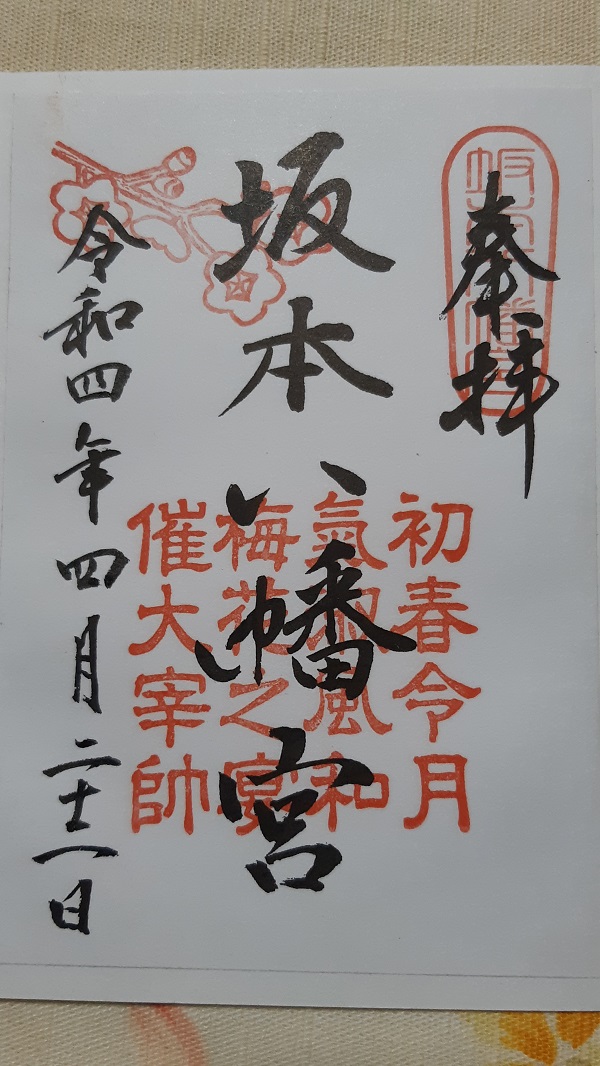 奉拝
坂本八幡宮
坂本八幡宮
初春令月
氣淑風和
梅花之宴
催大宰帥
令和四年四月二十二日